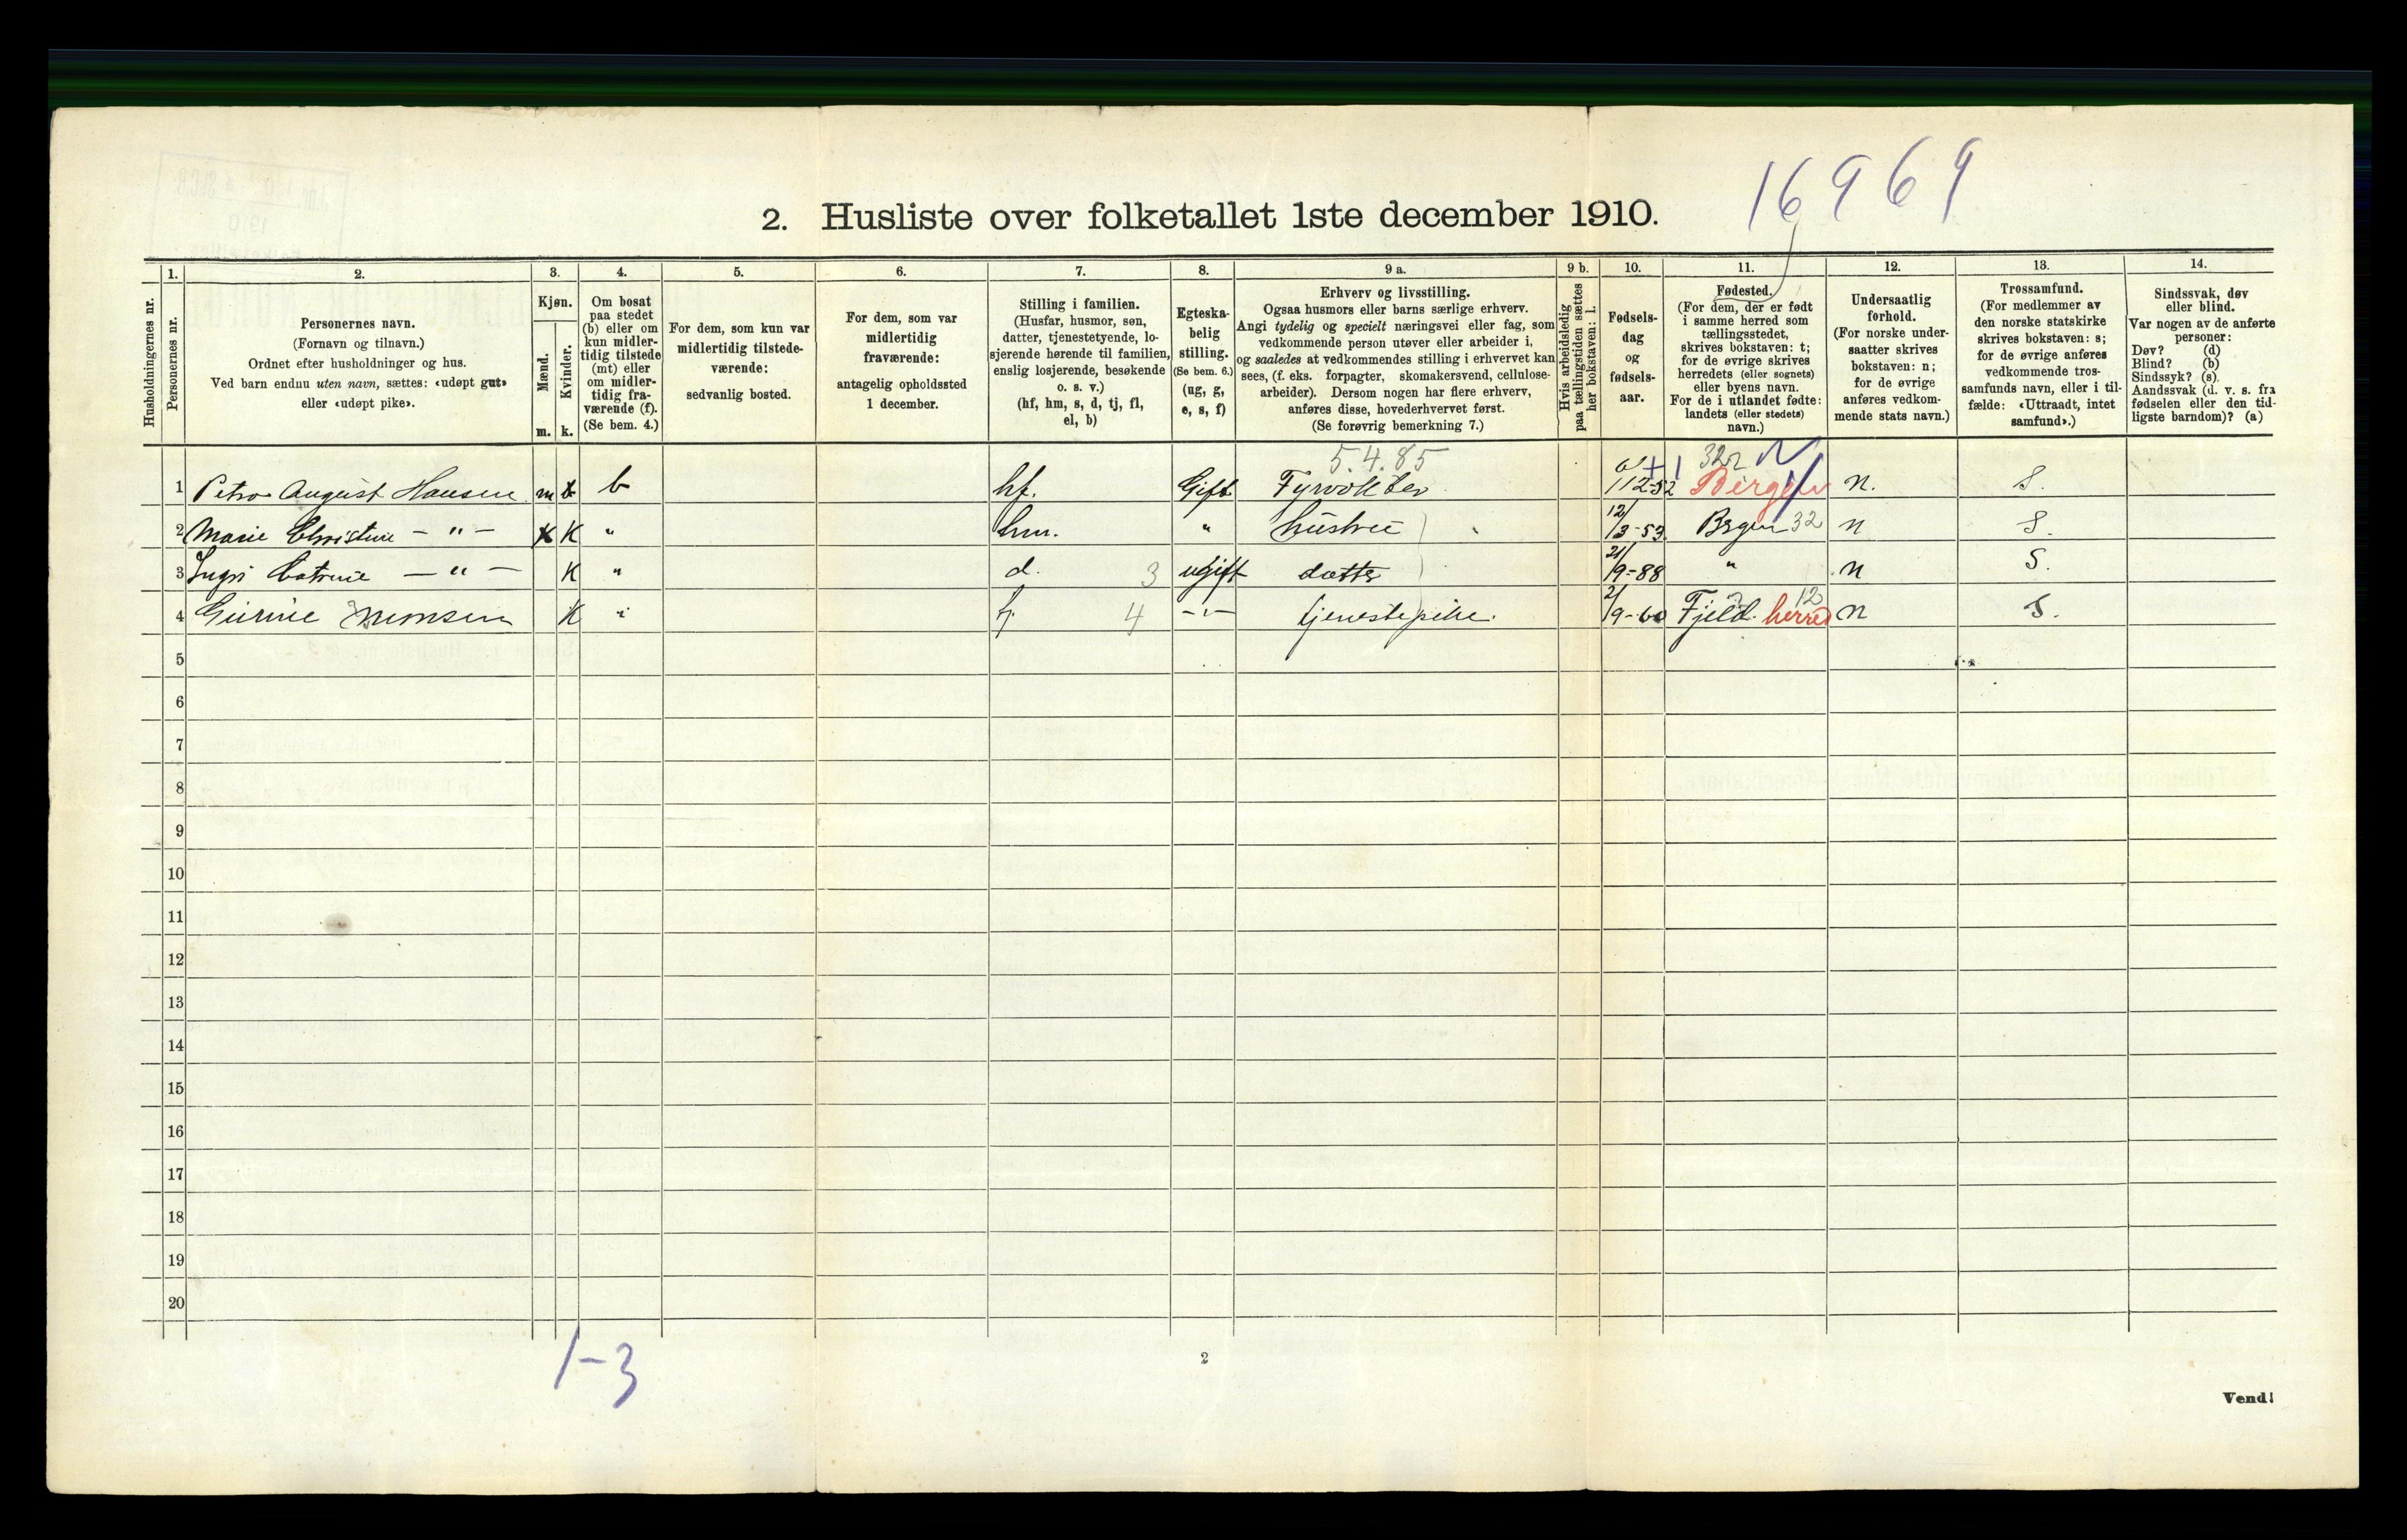 16969
2. Husliste over folketallet 1ste december 1910.
Husholdningernes nr.
1.
Personernes nr.
2.
Personernes navn.
(Fornavn og tilnavn.)
Ordnet efter husholdninger og hus.
Ved barn endnu uten navn, sættes: «udøpt gut»
eller «udøpt pike».
3.
Kjøn.
Mænd.
Kvinder.
m. k.
4.
Om bosat
paa stedet
(b) eller om
kun midler-
tidig tilstede
(mt) eller
om midler-
tidig fra-
værende (f).
(Se bem. 4.)
5.
For dem, som kun var
midlertidig tilstede-
værende:
sedvanlig bosted.
6.
For dem, som var
midlertidig
fraværende:
antagelig opholdssted
1 december.
7.
Stilling i familien.
(Husfar, husmor, søn,
datter, tjenestetyende, lo-
sjerende hørende til familien,
enslig losjerende, besøkende
o. s. v.)
(hf, hm, s, d, tj, fl,
el, b)
8.
Egteska-
belig
stilling.
(Se bem. 6.)
(ug, g,
e, s, f)
9 a.
Erhverv og livsstilling.
Ogsaa husmors eller barns særlige erhverv.
Angi tydelig og specielt næringsvei eller fag, som
vedkommende person utøver eller arbeider i,
og saaledes at vedkommendes stilling i erhvervet kan
sees, (f. eks. forpagter, skomakersvend, cellulose-
arbeider). Dersom nogen har flere erhverv,
anføres disse, hovederhvervet først.
(Se forøvrig bemerkning 7.)
9 b.
Hvis arbeidsledig
paa tællingstiden sættes
her bokstaven: l.
10.
Fødsels-
dag
og
fødsels-
aar.
11.
Fødested.
(For dem, der er født
i samme herred som
tællingsstedet,
skrives bokstaven: t;
for de øvrige skrives
herredets (eller sognets)
eller byens navn.
For de i utlandet fødte:
landets (eller stedets)
navn.)
12.
Undersaatlig
forhold.
(For norske under-
saatter skrives
bokstaven: n;
for de øvrige
anføres vedkom-
mende stats navn.)
13.
Trossamfund.
(For medlemmer av
den norske statskirke
skrives bokstaven: s;
for de øvrige anføres
vedkommende tros-
samfunds navn, eller i til-
fælde: «Uttraadt, intet
samfund».)
14.
Sindssvak, døv
eller blind.
Var nogen av de anførte
personer:
Døv? (d)
Blind? (b)
Sindssyk? (s)
Aandssvak (d. v. s. fra
fødselen eller den tid-
ligste barndom)? (a)
5.4.85
1 August Hansen m b hf. Gift 12-52 Bergen n. S.
2 Marie Christine — " — K " hm. " hustru 12/3-53 Bergen 32 n S.
3 — " — K " d. 3 ugift datter 21/9-88 " n S.
4 K " 4 -"- tjenestepike. 2/9-60 Fjeld herred 12 n S.
5
6
7
8
9
10
11
12
13
14
15
16
17
18
19
20
1-3
2
Vend!